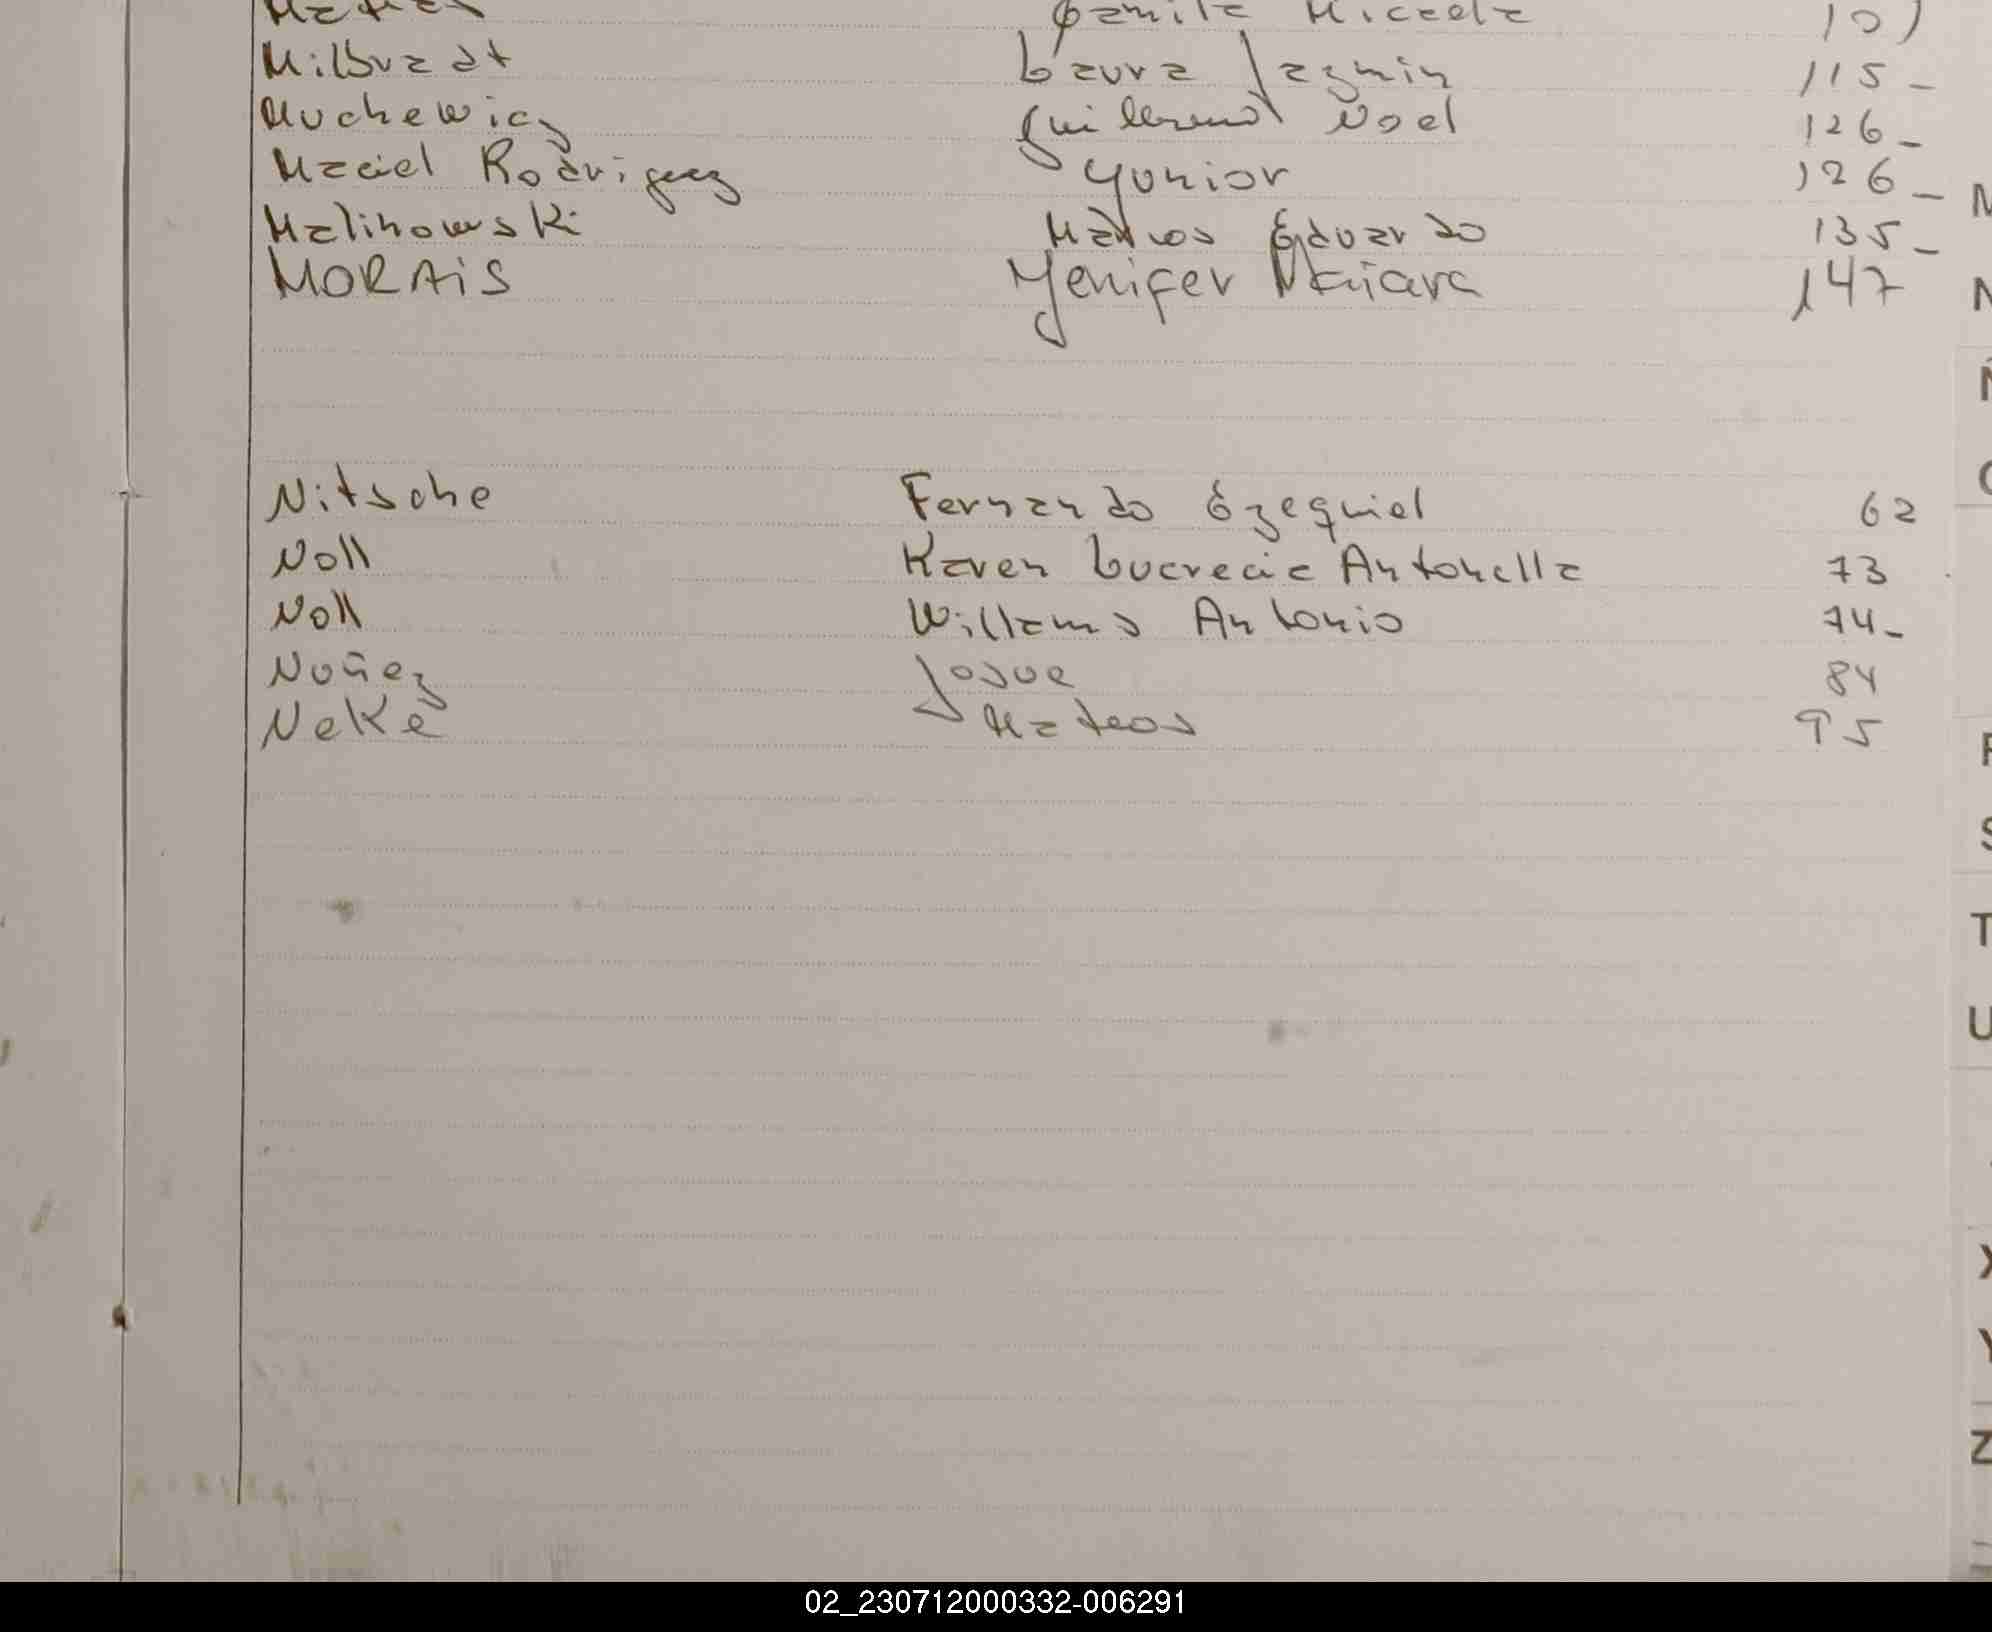 Camila Micaela 101
Milbradt Laura Jazmin 115 -
Muchewicz Guillermo Noel 126 -
Maciel Rodriguez Yunior 126 -
Malinowski Marcos Eduardo 135 -
MORAIS Yenifer Naiara 147
Nitsche Fernando Ezequiel 62
Noll Karen Lucrecia Antonella 73
Noll Willams Antonio 74 -
Nuñez Josue 84
Neke Mateos 95
T
U
X
Y
Z
02_230712000332-006291